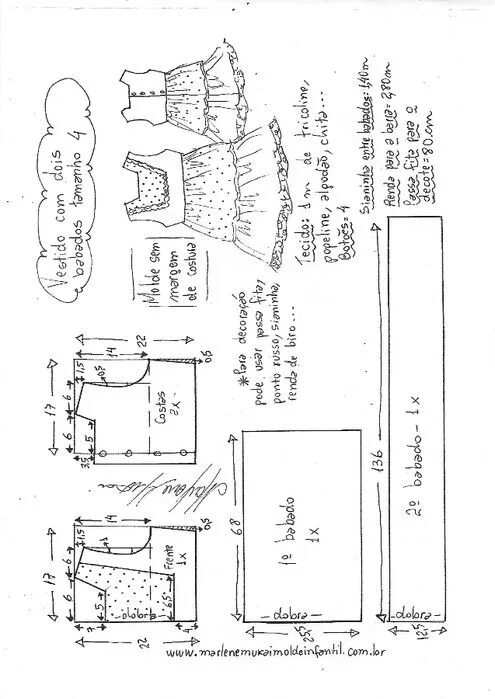 Vestido com dois
e babados tamanho 4
Molde sem
margem
de costura
Tecido: 1 m de tricoline,
popeline, algodão, chita...
Botões = 4
Sianinha entre babados: 1,40m
Renda para a barra = 2,80m
Passa fita para o
decote = 80cm
*Para decoração
pode usar passa fita,
ponto russo, sianinha,
renda de biro...
17
6
6
1,5
0,5
14
22
5
3,5
Costas
2x
0,5
17
6
6
1,5
14
5
7
22
6,5
4
Frente
1x
dobra
0,5
68
1º babado
1x
dobra
25,5
136
2º babado - 1x
dobra
12,5
www.marlenemukaimoldeinfantil.com.br